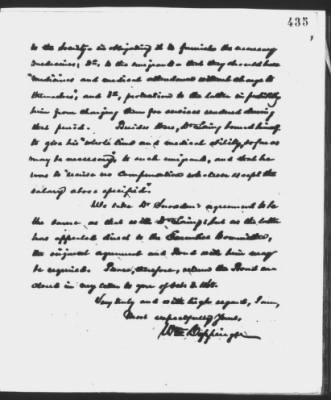 435
to the Society in obligating it to furnish the necessary
medicines; 2nd, to the emigrants that they should have
"medicines and medical attendance without charge to
themselves"; and 3d, protection to the latter in prohibiting
him from charging them for services rendered during
that period. Besides this, Dr Laing bound himself
to give his "whole time and medical ability, so far as
may be necessary" to such emigrants, and that he
was to "receive no compensation whatever except the
salary above specified".
We take Dr Snowden's agreement to be
the same, as that with Dr Laing; but as the latter
has appealed direct to the Executive Committee,
the original agreement and Bond with him may
be required. I
in my letter to you of Oct.
Very truly and with high regard, I am,
Most respectfully Yours,
Wm Coppinger